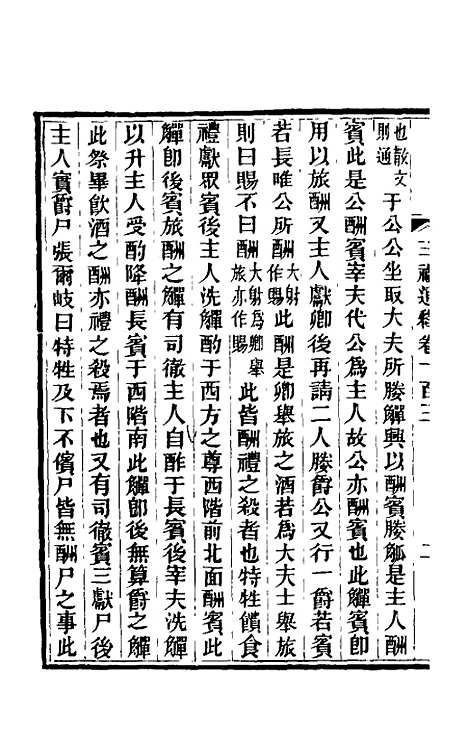 三禮通釋卷一百三 二
也散文則通于公公坐取大夫所媵觶興以酬賓媵觚是主人酬
賓此是公酬賓宰夫代公為主人故公亦酬賓也此觶賓卽
用以旅酬又主人獻卿後再請二人媵爵公又行一爵若賓
若長唯公所酬大射作賜此酬是卿舉旅之酒若為大夫士舉旅
則曰賜不曰酬大射為卿舉旅亦作賜此皆酬禮之殺者也特牲饋食
禮獻眾賓後主人洗觶酌于西方之尊西階前北面酬賓此
觶卽後賓旅酬之觶有司徹主人自酢于長賓後宰夫洗觶
以升主人受酌降酬長賓于西階南此觶卽後無算爵之觶
此祭畢飲酒之酬亦禮之殺焉者也又有司徹賓三獻尸後
主人賓爵尸張爾岐曰特牲及下不儐尸皆無酬尸之事此